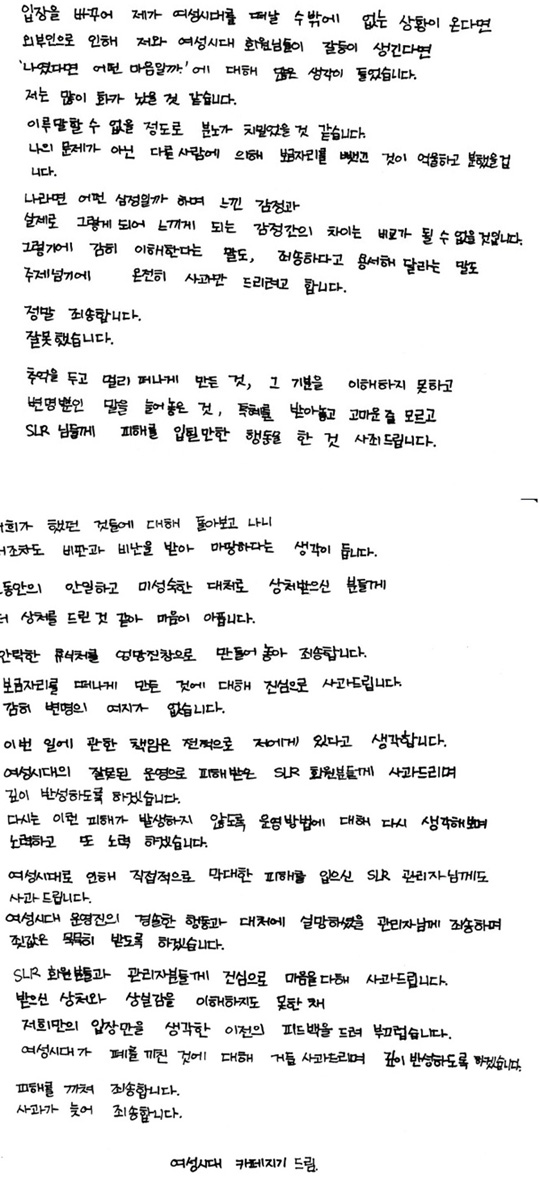 입장을 바꾸어 제가 여성시대를 떠날 수밖에 없는 상황이 온다면
외부인으로 인해 저와 여성시대 회원님들이 갈등이 생긴다면
'나였다면 어떤 마음일까.'에 대해 많은 생각이 들었습니다.
저는 많이 화가 났을 것 같습니다.
이루말할 수 없을 정도로 분노가 치밀었을 것 같습니다.
나의 문제가 아닌 다른사람에 의해 보금자리를 빼앗긴 것이 억울하고 분했을겁
니다.
나라면 어떤 심정일까 하며 느낀 감정과
실제로 그렇게 되어 느끼게 되는 감정간의 차이는 비교가 될 수 없을것입니다.
그렇기에 감히 이해한다는 말도, 죄송하다고 용서해 달라는 말도
주제넘기에 온전히 사과만 드리려고 합니다.
정말 죄송합니다.
잘못했습니다.
추억을 두고 멀리 떠나게 만든 것, 그 기분을 이해하지 못하고
변명뿐인 말을 늘어놓은 것, 특혜를 받아놓고 고마운줄 모르고
SLR 님들께 피해를 입힐만한 행동을 한 것 사죄드립니다.
저희가 했던 것들에 대해 돌아보고 나니
저조차도 비판과 비난을 받아 마땅하다는 생각이 듭니다.
그동안의 안일하고 미성숙한 대처로 상처받으신 분들께
더 상처를 드린 것 같아 마음이 아픕니다.
안락한 휴식처를 엉망진창으로 만들어 놓아 죄송합니다.
보금자리를 떠나게 만든 것에 대해 진심으로 사과드립니다.
감히 변명의 여지가 없습니다.
이번 일에 관한 책임은 전적으로 저에게 있다고 생각합니다.
여성시대의 잘못된 운영으로 피해받은 SLR 회원분들께 사과드리며
깊이 반성하도록 하겠습니다.
다시는 이런 피해가 발생하지 않도록 운영방법에 대해 다시 생각해보며
노력하고 또 노력 하겠습니다.
여성시대로 인해 직접적으로 막대한 피해를 입으신 SLR 관리자님께도
사과드립니다.
여성시대 운영진의 경솔한 행동과 대처에 실망하셨을 관리자님께 죄송하며
죗값은 묵묵히 받도록 하겠습니다.
SLR 회원분들과 관리자분들께 진심으로 마음을 다해 사과드립니다.
받으신 상처와 상실감을 이해하지도 못한 채
저희만의 입장만을 생각한 이전의 피드백을 드려 부끄럽습니다.
여성시대가 폐를 끼친 것에 대해 거듭 사과드리며 깊이 반성하도록 하겠습니다.
피해를 끼쳐 죄송합니다.
사과가 늦어 죄송합니다.
여성시대 카페지기 드림.